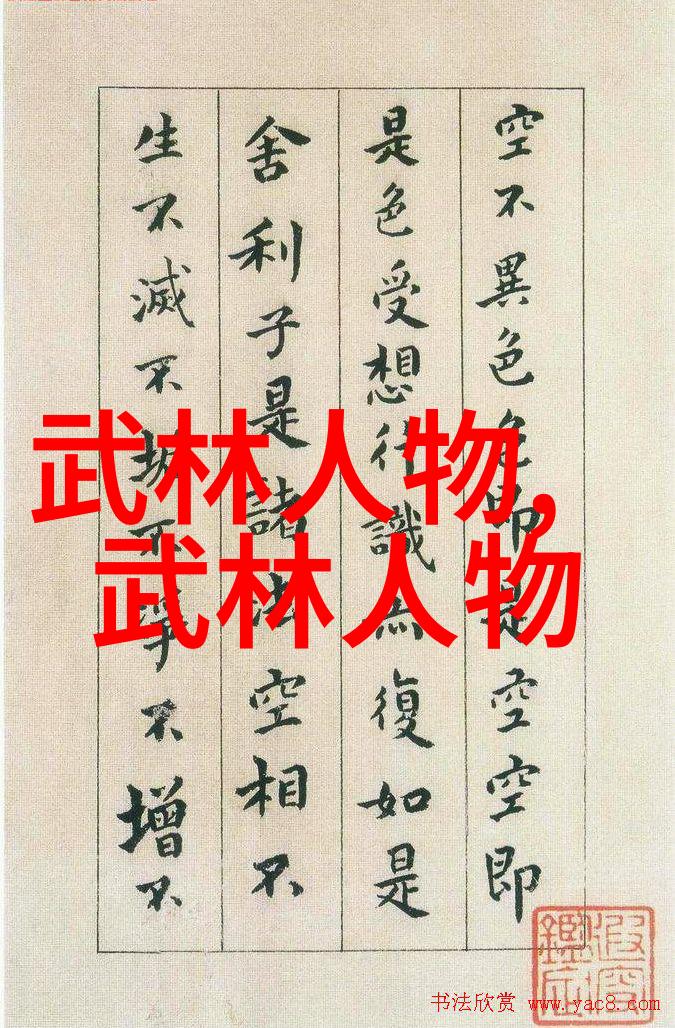 空不異色色即是空空即
是色受想行識亦復如是
舍利子是諸法空相不
生不滅不垢不淨不增不
武林人物,
武林人物
书法欣赏 www.yac8.com